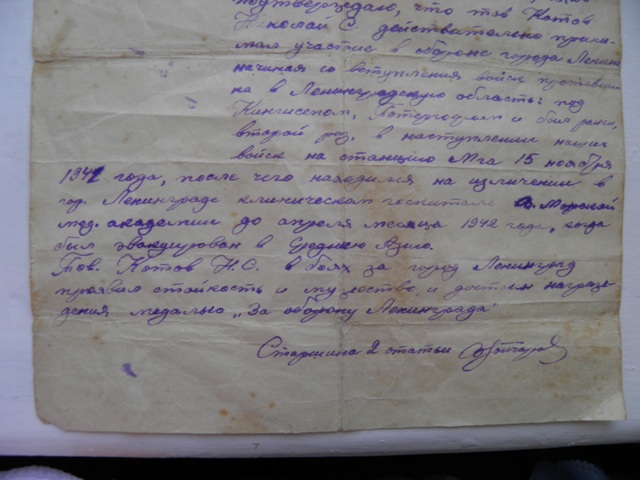 подтверждаю, что тов Котов
Николай С действительно прини-
мал участие в обороне города Ленин
начиная со вступления войск противни
ка в Ленинградскую область: под
Кингисепом, и был ранен,
второй раз, в наступлении наших
войск на станцию Мга 15 ноября
1941 года, после чего находился на изличении в
гор. Ленинграде клиническом госпитале Морской
мед. академии до апреля месяца 1942 года, когда
был эвакуирован в Среднюю Азию.
Тов. Котов Н.С. в боях за город Ленинград
проявил стойкость и мужество, и достоин награж-
дения медалью „За оборону Ленинграда"
Старшина 2 статьи